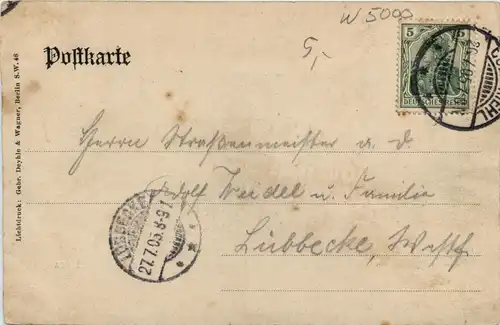 W 5000
5,-
5 5
DEUTSCHES REICH
Postkarte
Herrn Straßenmeister a. D.
Adolf Weidel u. Familie
Lübbecke, Westf.
LÜBBECKE
27.7.05.8-9
Lichtdruck: Gebr. Deyhle & Wagner, Berlin S.W. 48